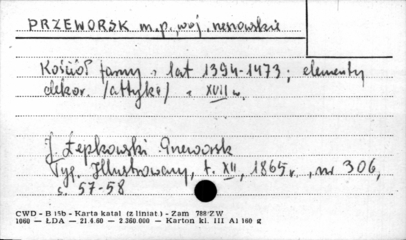 PRZEWORSK m.p., woj. rzeszowskie
Kościół farny z lat 1394-1473; elementy
dekor. /attyka/ z XVII w.
J. Łepkowski Przeworsk
Tyg. Illustrowany, t. XII, 1865 r., nr 306,
s. 57-58
CWD - B 15b - Karta katal (z liniat.) - Zam 788/ZW
1060 — ŁDA — 21.4.60 — 2 360.000 — Karton kl. III A1 160 g